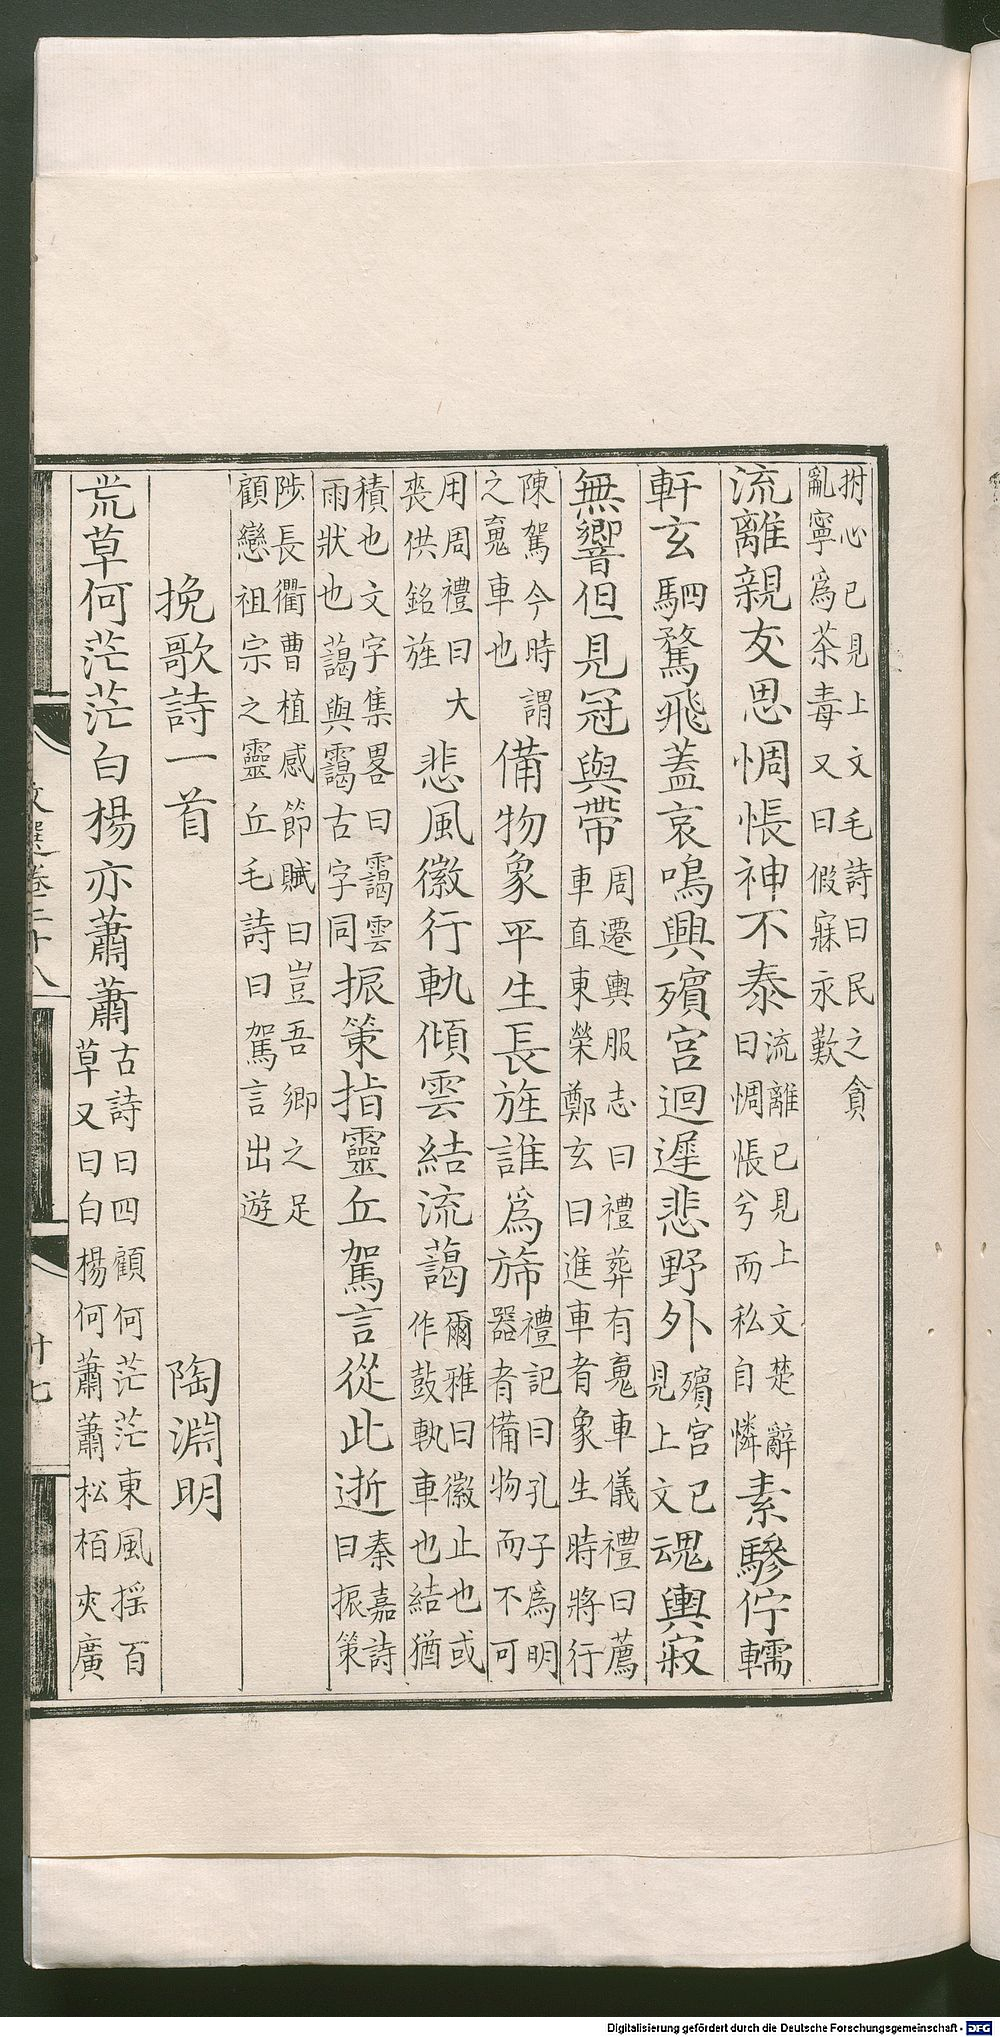 拊心已見上文毛詩曰民之貪
亂寧爲荼毒又曰假寐永歎
流離親友思惆悵神不泰流離已見上文楚辭曰惆悵兮而私自憐素驂佇轜
軒玄駟騖飛蓋哀鳴興殯宮迴遲悲野外殯宮已見上文魂輿寂
無響但見冠與帶周遷輿服志曰禮葬有䰟車儀禮曰薦車直東榮鄭玄曰進車者象生時將行
陳駕今時謂之䰟車也備物象平生長旌誰爲旆禮記曰孔子爲明器者備物而不可
用周禮曰大喪供銘旌悲風徽行軌傾雲結流藹爾雅曰徽止也或作鼓軌車也結猶
積也文字集畧曰靄雲雨狀也藹與靄古字同振策指靈丘駕言從此逝秦嘉詩曰振策
陟長衢曹植感節賦曰豈吾卿之足
顧戀祖宗之靈丘毛詩曰駕言出遊
挽歌詩一首 陶淵明
荒草何茫茫白楊亦蕭蕭古詩曰四顧何茫茫東風揺百草又曰白楊何蕭蕭松栢夾廣
文選卷二十八
廿七
Digitalisierung gefördert durch die Deutsche Forschungsgemeinschaft - DFG